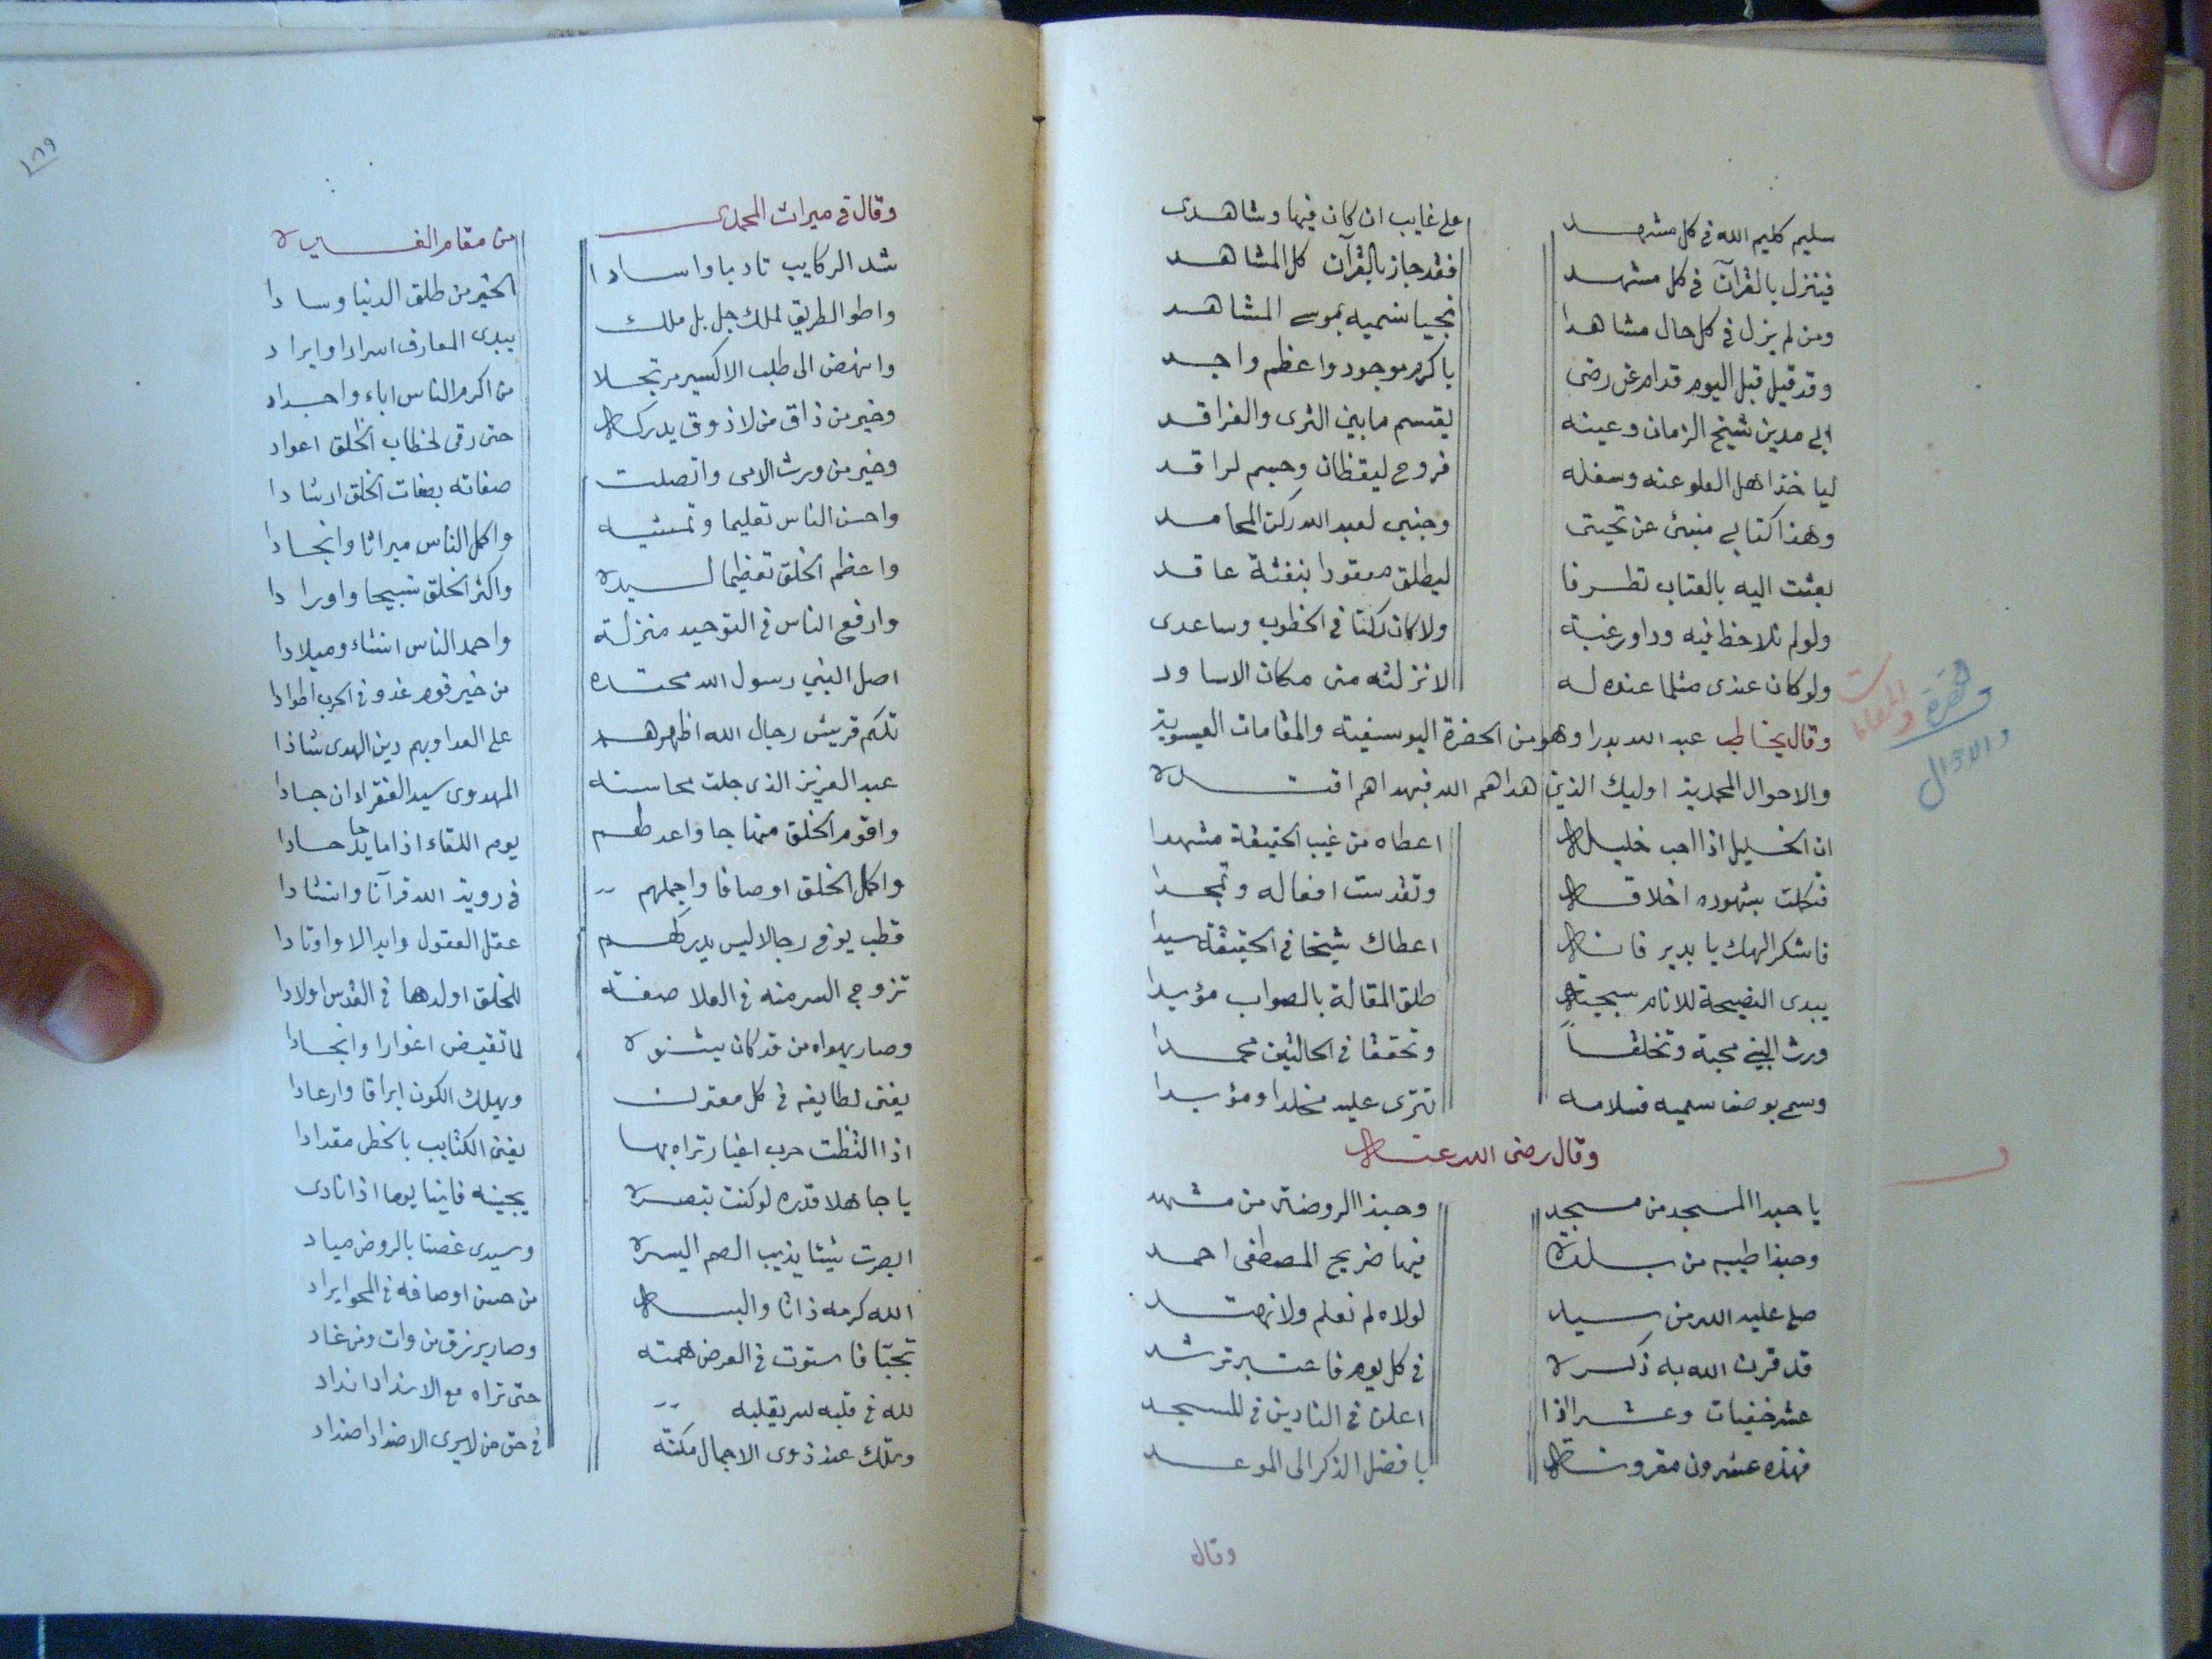 سليم كليم الله في كل مشهد على غايب ان كان فيها وشاهدى
فينزل بالقرآن في كل مشهد فقد جاز بالقرآن كل المشاهد
ومن لم يزل في كل حال مشاهدا نجيا نسميه بموسى المشاهد
وقد قيل قبل اليوم قدام عن رضى باكرم موجود واعظم واجد
ابى مدين شيخ الزمان وعينه يقسم ما بين الثرى والفراقد
لياخذ اهل العلو عنه وسفله فروح ليقظان وجسم لراقد
وهذا كتابى منبئ عن تحيتى وجنبى لعبد الله ركن المحامد
بعثت اليه بالعتاب تطرفا ليطلق معقودا بنفثة عاقد
ولو لم نلاحظ فيه ودا ورغبة ولا كان ركنا في الخطوب وساعدى
ولو كان عندى مثلما عنده له لانزلته منى مكان الاساود
وقال يخاطب عبد الله بدرا وهو من الحضرة اليوسفية والمقامات العيسوية
والاحوال المحمدية اوليك الذين هداهم الله فبهداهم اقتده
ان الخليل اذا احب خليله اعطاه من غيب الحقيقة مشهدا
فتكملت بشهوده اخلاقه وتقدست افعاله وتمجدا
فاشكر الهك يا بدير فانه اعطاك شيخا في الحقيقة سيدا
يبدى النصيحة للانام سجية طلق المقالة بالصواب مؤيدا
ورث النبى محبة وتخلقاً وتحققا في الحالتين محمدا
وسمى بوصف سميه فسلامه تترى عليه مخلدا ومؤبدا
وقال رضى الله عنه
يا حبذا المسجد من مسجد وحبذا الروضة من مشهد
وحبذا طيبه من بلدة فيها ضريح المصطفى احمد
صلى عليه الله من سيد لولاه لم نعلم ولا نهتد
قد قرن الله به ذكره في كل يوم فاعتبر ترشد
عشر خفيات وعشر اذا اعلن في التاذين في المسجد
فهذه عشرون مقرونة بافضل الذكر الى الموعد
وقال
حضرة
والمقامات
والاحوال
١٨٩
وقال في ميراث المحمدى من مقام الغيره
شد الركايب تادبا واسادا الخير من طلق الدنيا وسادا
واطو الطريق لملك جل بل ملك يبدى المعارف اسرادا وايراد
وانهض الى طلب الاكسير مرتجلا من اكرم الناس اباء واجداد
وخير من ذاق من لا ذوق يدركه حتى رقى لخطاب الخلق اعواد
وخير من ورث الامى واتصلت صفاته بصفات الخلق ارشادا
واحسن الناس تعليما وتمشيه واكمل الناس ميراثا وانجادا
واعظم الخلق تعظيما لسيده واكثر الخلق تسبيحا واورادا
وارفع الناس في التوحيد منزلة واحمد الناس انشاء وميلادا
اصل النبي رسول الله محتده من خير قوم غدو في الحرب اطوادا
تلكم قريش رجال الله اظهرهم على العدا وبهم دين الهدى شادا
عبد العزيز الذى جلت محاسنه المهدوى سيد الفقراء ان جادا
واقوم الخلق منهاجا واعدطهم يوم اللقاء اذا ما حادا
واكمل الخلق اوصافا واجملهم في روية الله قرآنا وانشادا
قطب يوفى رجالا ليس يدركهم عقل العقول وابدالا واوتادا
تزوجى السر منه في العلا صفة للخلق اولدها في القدس اولادا
وصار يهواه من قد كان يشنوه لما تقيض اغوارا وانجادا
يفنى لطايفه في كل مقترن ويهلك الكون ابراقا وارعادا
اذا التظت حرب اغيار تراه بها يفنى الكتايب بالخطى مقدادا
يا جاهلا قدره لو كنت تبصره يجينه فانيا يوما اذا نادى
ابصرت شيئا يذيب الصم ايسره وسيدى غصنا بالروض مياد
الله كرمه ذاتا والبسه من حسن اوصافه في المحو ايراد
تجنبا فاستوت في العرض همته وصار يرزق من وات ومن غاد
لله في قلبه سر يقلبه حتى تراه مع الانداد انداد
وتلك عند ذوى الاجمال مكنته في حق من لا يرى الاضداد اضداد